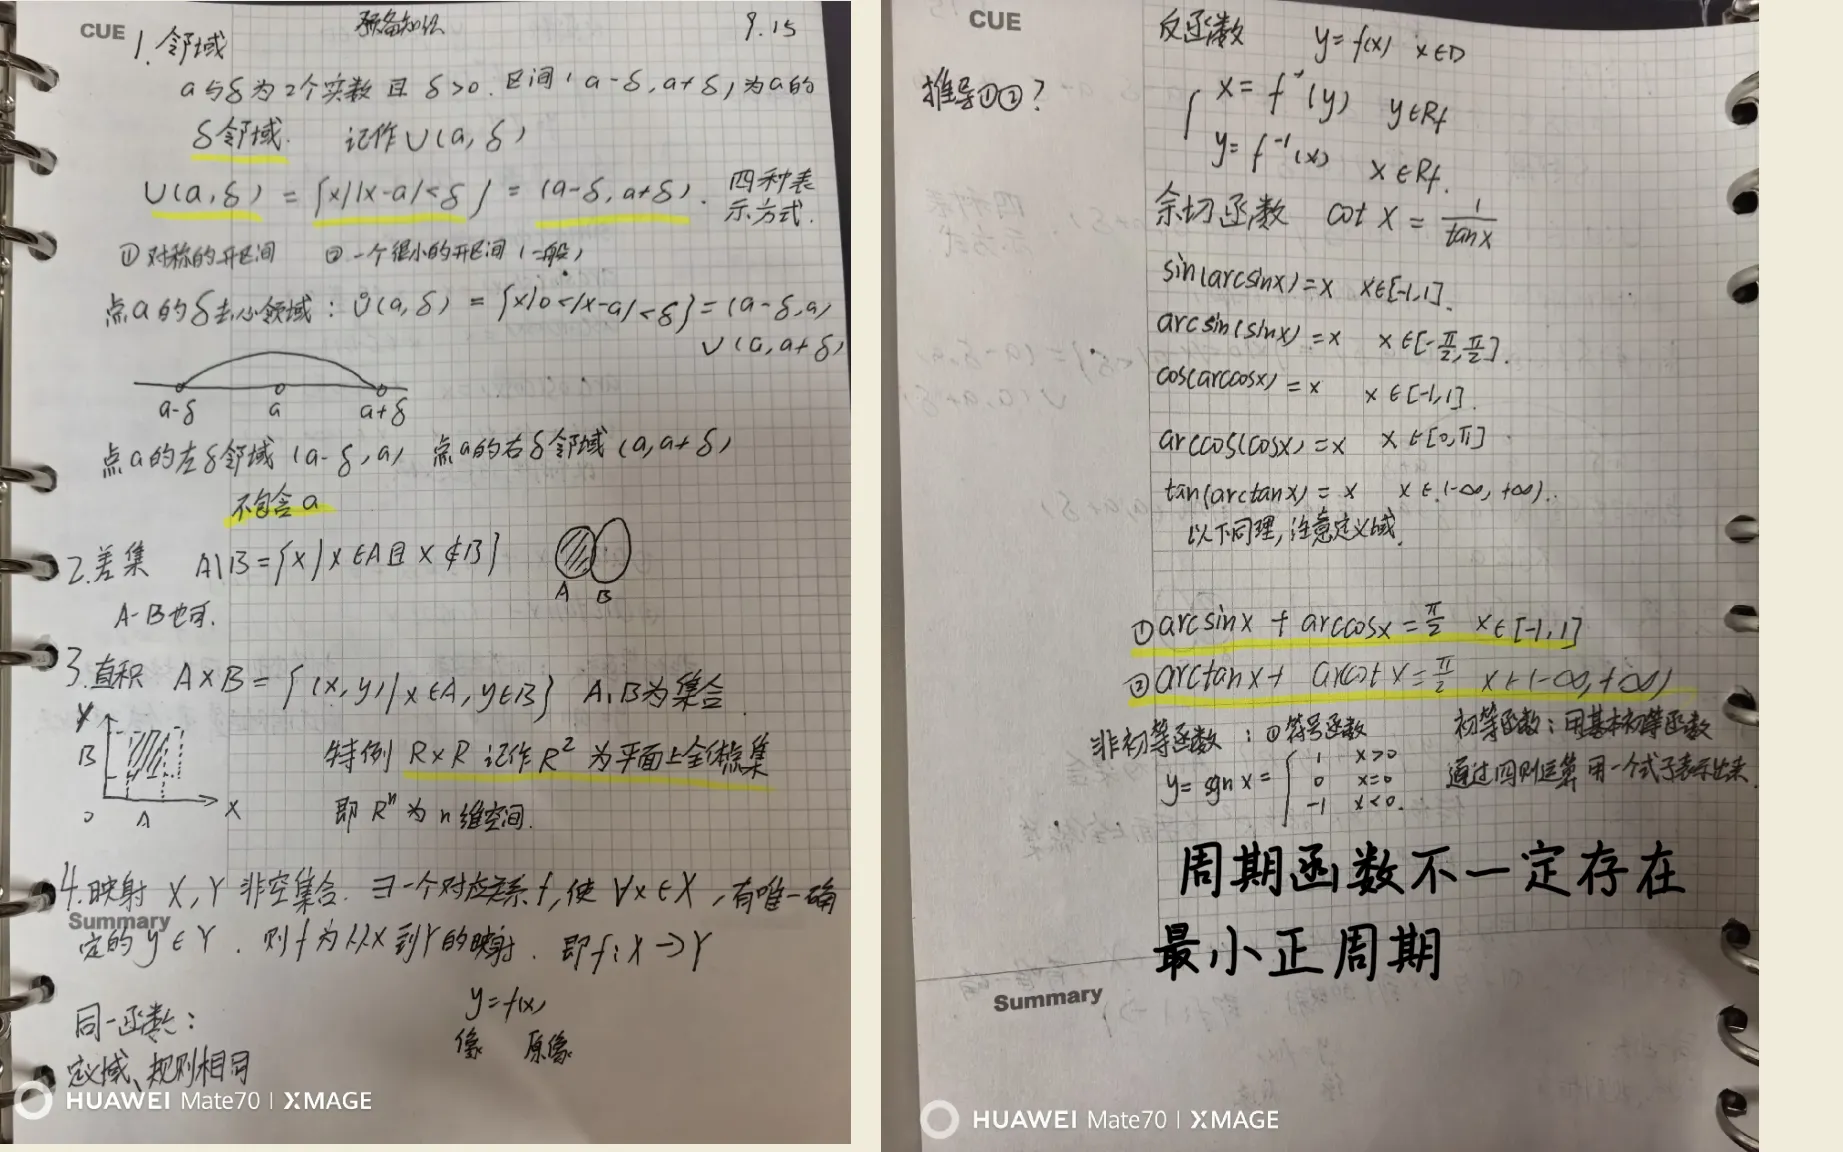 CUE
预备知识
9.15
1. 邻域
a与δ为2个实数且 δ>0. 区间(a-δ,a+δ)为a的
δ邻域. 记作U(a,δ)
U(a,δ) = {x||x-a|<δ} = (a-δ,a+δ).
四种表
示方式.
①对称的开区间 ②一个很小的开区间(一般)
点a的δ去心领域: Ů(a,δ) = {x|0<|x-a|<δ}=(a-δ,a)
∪(a,a+δ)
a-δ a a+δ
点a的左δ邻域(a-δ,a) 点a的右δ邻域(a,a+δ)
不包含a
2.差集 A\B={x|x∈A且x∉B}
A B
A-B也可.
3.直积 A×B={(x,y)|x∈A,y∈B} A,B为集合
y
B
0 A x
特例 R×R 记作R² 为平面上全体点集
即 Rⁿ为n维空间.
4.映射 X,Y非空集合.∃一个对应关系f,使∀x∈X,有唯一确
Summary
定的y∈Y. 则f为从X到Y的映射. 即f:X→Y
y=f(x)
像 原像
同一函数:
定义域、规则相同
HUAWEI Mate70 | XMAGE
CUE
反函数 y=f(x) x∈D
推导①②?
x=f⁻¹(y) y∈Rf
y=f⁻¹(x) x∈Rf.
余切函数 cot x = 1/tanx
sin(arcsinx)=x x∈[-1,1].
arcsin(sinx)=x x∈[-π/2,π/2].
cos(arccosx)=x x∈[-1,1].
arccos(cosx)=x x∈[0,π]
tan(arctanx)=x x∈(-∞,+∞).
以下同理,注意定义域.
①arcsinx + arccosx=π/2 x∈[-1,1]
②arctanx+ arccot x=π/2 x∈(-∞,+∞)
非初等函数:①符号函数
y= sgn x= { 1 x>0
0 x=0
-1 x<0.
初等函数:用基本初等函数
通过四则运算 用一个式子表示出来.
周期函数不一定存在
最小正周期
Summary
HUAWEI Mate70 | XMAGE